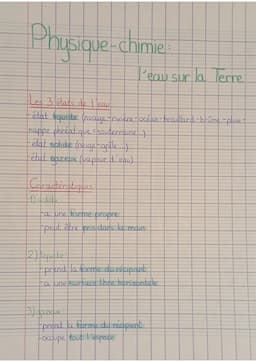 Physique-chimie:
l'eau sur la Terre
Les 3 états de l'eau
-état liquide (nuage-rivière-océan-brouillard-brûme-pluie-
nappe phréatique souterraine...)
-état solide (neige-grêle...)
-état gazeux (vapeur d'eau)
Caractéristiques
1) solide
-a une forme propre
-peut être pris dans la main
2) liquide:
-prend la forme du récipient
-a une surface libre horizontale
3) gazeux:
-prend la forme du récipient
-occupe tout l'espace